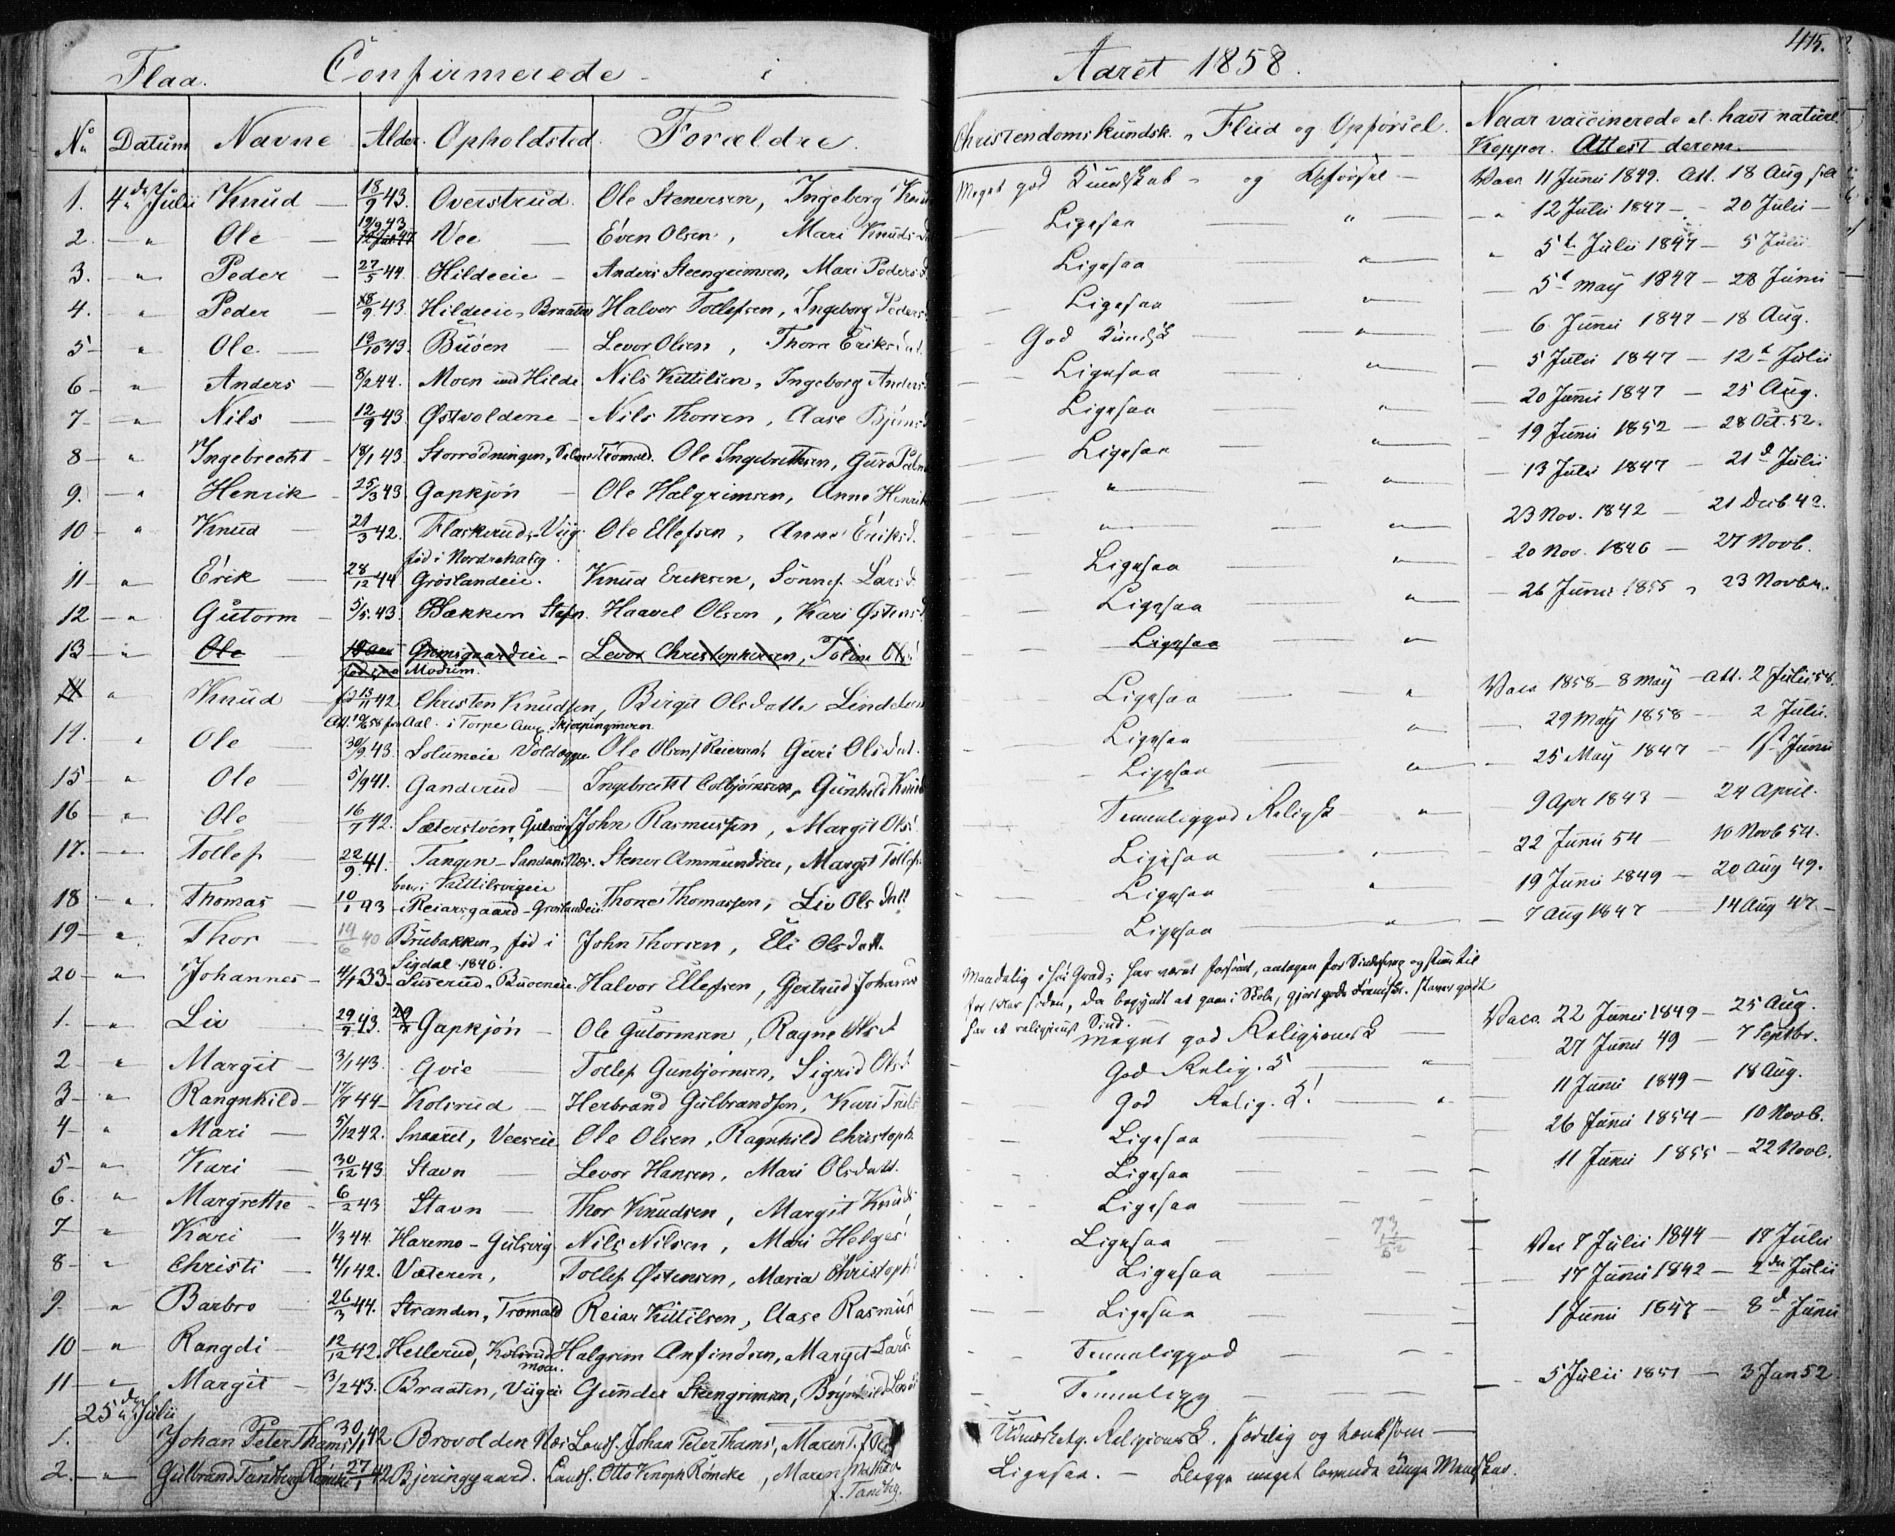 Flaa. Confirmerede i Aaret 1858. 415.
No Datum Navne Alder. Opholdsted. Forældre. Christendomskundsk. Flid og Opførsel. Naar vaccinerede el. havt naturl.
Kopper. Attest derom.
1. 4de Julii Knud 18/9 43. Overstrud. Ole Stenersen, Ingeborg Meget god Kundskab og Opførsel Vacc. 11 Junii 1849. Att. 18 Aug
2. " Ole 19/9 43 Vee Even Olsen, Mari Knuds Ligesaa " 12 Julii 1847 - 20 Julii
3. " Peder 27/5 44. Hildeeie Anders Steengrimsen, Mari Peders Ligesaa " 5t Julii 1847 - 5 Julii
4. " Peder 18/9 43. Hildeeie, Braaten Halvor Tollefsen, Ingeborg Peders Ligesaa " 5t may 1847 - 28 Junii
5 " Ole 13/10 43. Buøen Levor Olsen, Thora Eriksdat. God Kundsk " 6 Junii 1847 - 18 Aug.
6 " Anders 8/2 44. Moen und Hilde Nils Kittilsen, Ingeborg Anders Ligesaa " 5 Julii 1847 - 12t Julii
7 " Nils 12/9 43. Østvoldene Nils Thorsen, Aase Bjørns Ligesaa " 20 Junii 1847 - 25 Aug.
8 " Ingebrecht 18/1 43 Storrødningen, Tromald. Ole Ingebrethsen, Guro Ligesaa " 19 Junii 1852 - 28 Oct. 52.
9. " Henrik 25/3 43 Gapkjøn Ole Halgrimsen, Anne Henrik " " 13 Julii 1847 - 21d Julii
10 " Knud 21/3 42. Flaskerud, Viig. Ole Ellefsen, Anne Eriksd. " " 23 Nov. 1842 - 21 Decb 42.
fød i Nordrehaug
11 " Erik 28/12 44 Grøslandeie. Knud Eriksen, Sønnef Larsd. Ligesaa " 20 Nov. 1846 - 27 Novb.
12 " Gutorm 5/5 43. Bakken Stafn. Haavel Olsen, Kari Østens Ligesaa " 26 Junii 1855, 23 Novbr.
13 " Ole Grimsgaardeie Levor Christophersen, Toline Ols Ligesaa "
Modum.
14 " Knud 13/11 42 Christen Knudsen, Birgit Olsdatte Ligesaa " Vacc 1858 - 8 may - Att. 2 Julii 58.
i Torpe
14. " Ole 30/9 43. Solumeie Voldoggen Ole Olsen, Reiersen, Guri Olsdat. Ligesaa " 29 May 1858 - 2 Julii.
15 " Ole 5/9 41. Ganderud Ingebrecht Colbjørnsen, Gunhild Knuds Ligesaa " 25 May 1847 - 1st Junii
16 " Ole 16/7 42. Sæterstøen, Gulsvig John Rasmussen, Margit Ols Temmeliggod Religsk " 9 Apr 1843 - 24 April.
17. " Tollef 22/9 41. Tangen - Næs. Stener Ammundsen, Margit Tollefs Ligesaa " 22 Junii 54 - 10 Novb 54.
i Kittilsvigeie
18 " Thomas 10/1 43 i Reiarsgaard - Grøslandeie. Thore Thomassen, Liv Olsdatt Ligesaa " 19 Junii 1849 - 20 Aug 49.
19 " Thor 14/6 40 Brubakken, fød i John Thorsen, Eli Olsdatt. Ligesaa " 7 Aug 1847 - 14 Aug 47.
Sigdal 1840.
20 " Johannes 4/7 33 Suserud, Buøeneie. Halvor Ellefsen, Gertrud Johanns Maadelig i høi Grad; har været forsømt, antagen for Sindssvag og stum til
for 1 Aar siden, da begyndt at gaae i Skole, gjort gode Fremskr. staver godt
har et religieust Sind.
1. " Liv 29/7 43. Gapkjøn Ole Gutormsen, Ragne Olsdt Meget god Religionsk Vacc. 22 Junii 1849 - 25 Aug.
2 " Margit 3/1 43. Gvie Tollef Gunbjørnsen, Sigrid Ols God Relig. K " 27 Junii 49 - 7 Septbr.
3 " Rangnhild 17/7 44 Kolsrud Herbrand Gulbrandsen, Kari God Relig. K! " 11 Junii 1849 - 18 Aug.
4 " Mari 5/12 42. Snaaret, Veeseie Ole Olsen, Ragnhild Christoph. Ligesaa 26 Junii 1854 - 10 Novb.
5 " Kari 30/12 43 Stavn Levor Hansen, Mari Olsdatt. Ligesaa 11 Junii 1855 - 22 Novb.
6. " Margrethe 6/2 43 Stavn Thor Knudsen, Margit Knuds Ligesaa
7 " Kari 1/3 44. Haremo - Gulsvig Nils Nilsen, Mari Helges Ligesaa Vac 7 Julii 1844 - 17 Julii
8 " Christi 4/1 42. Væteren, Tollef Østensen, Maria Christoph Ligesaa 17 Junii 1842 - 2den Julii
9. " Barbro 26/3 44. Stranden, Tromald Reiar Kittilsen, Aase Rasmus Ligesaa 1 Junii 1847 - 8d Junii
10 " Rangdi 12/12 42. Hellerud, Kolsrud moen. Halgrim Anfindsen, Margit Lars Temmeliggod
11 " Margit 3/2 43. Braaten, Viigeie Gunder Steengrimsen, Lars Temmeligg 5 Julii 1851 - 3 Jan 52
25de Julii
1. Johan Peter Thams 30/1 42 Brovolden Næs Landh. Johan Peter Thams, Maren Udmærket g. Religionsk. færdig og tænksom
2. " Gulbrand Tandberg Rømcke 27/1 42 Bjeringgaard. Landh. Otto Knoph Rømcke, Maren Mathea Ligesaa. - Begge meget lovende unge Mennesker.
f. Tandbg.